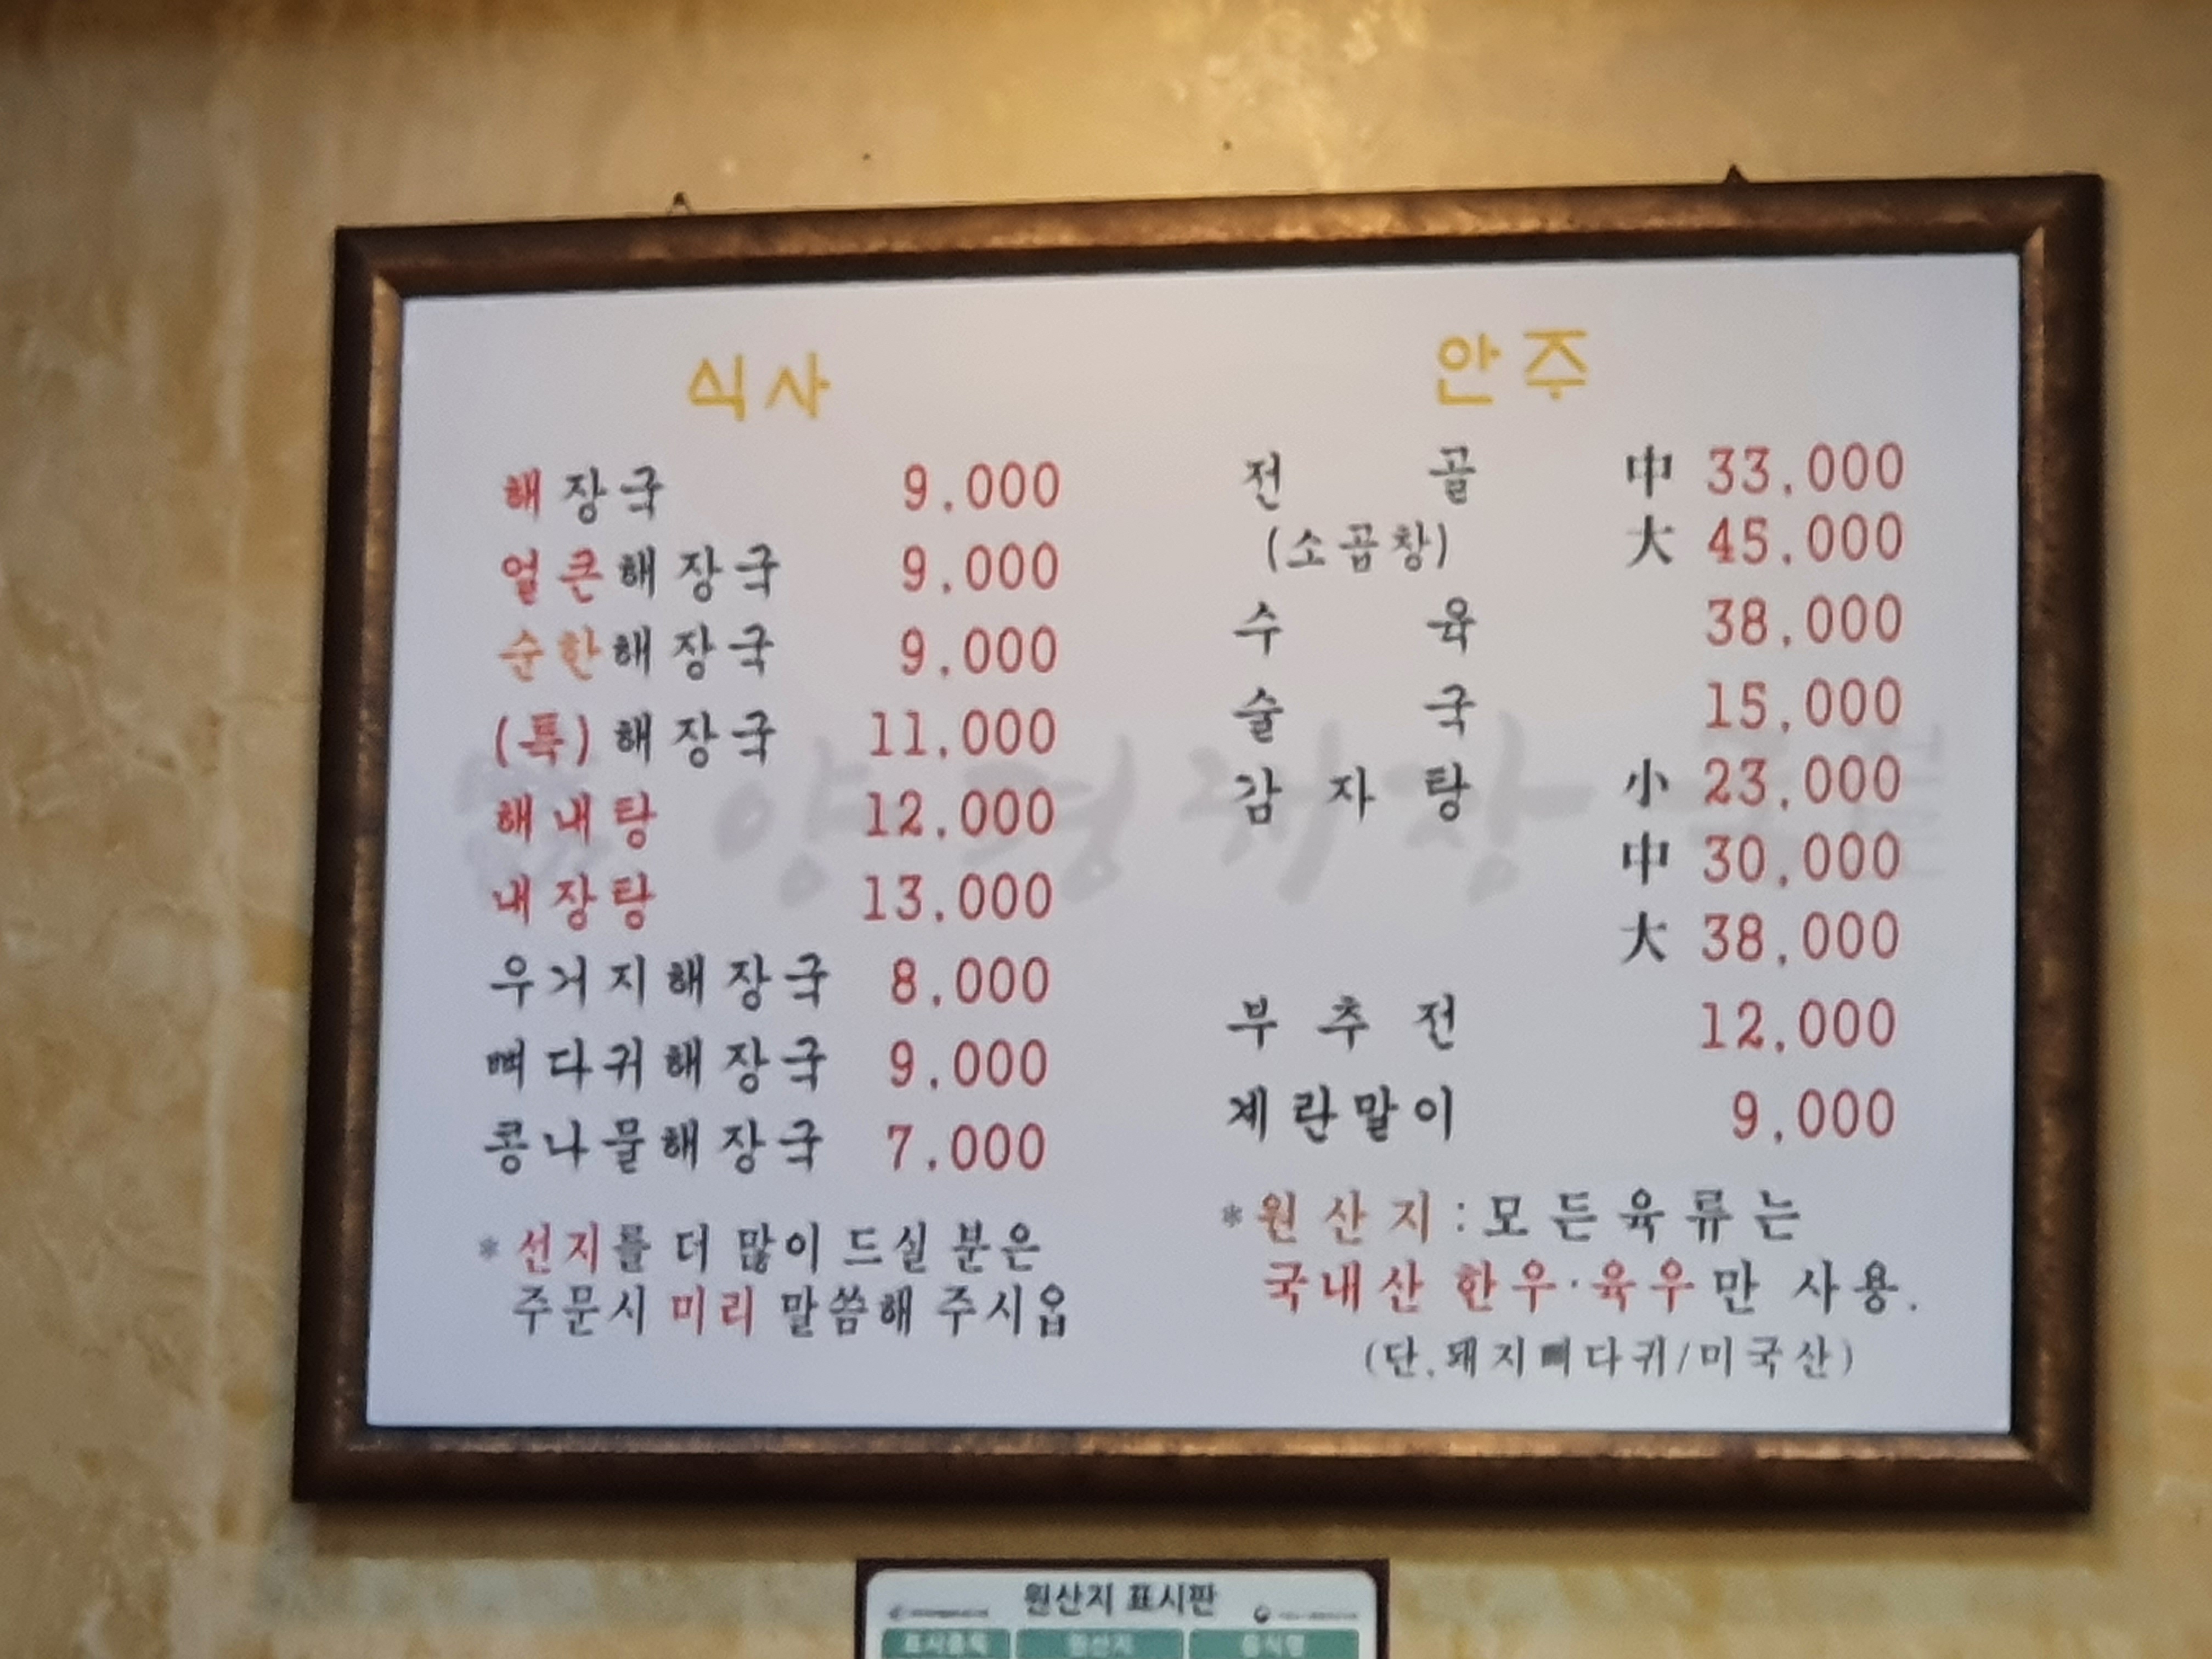 식사
해장국 9,000
얼큰해장국 9,000
순한해장국 9,000
(특)해장국 11,000
해내탕 12,000
내장탕 13,000
우거지해장국 8,000
뼈다귀해장국 9,000
콩나물해장국 7,000
*선지를 더 많이 드실 분은
주문시 미리 말씀해 주시옵
안주
전골 中 33,000
(소곱창) 大 45,000
수육 38,000
술국 15,000
감자탕 小 23,000
中 30,000
大 38,000
부추전 12,000
계란말이 9,000
*원산지:모든육류는
국내산 한우·육우만 사용.
(단,돼지뼈다귀/미국산)
양평해장국
원산지 표시판
표시품목 원산지 음식명